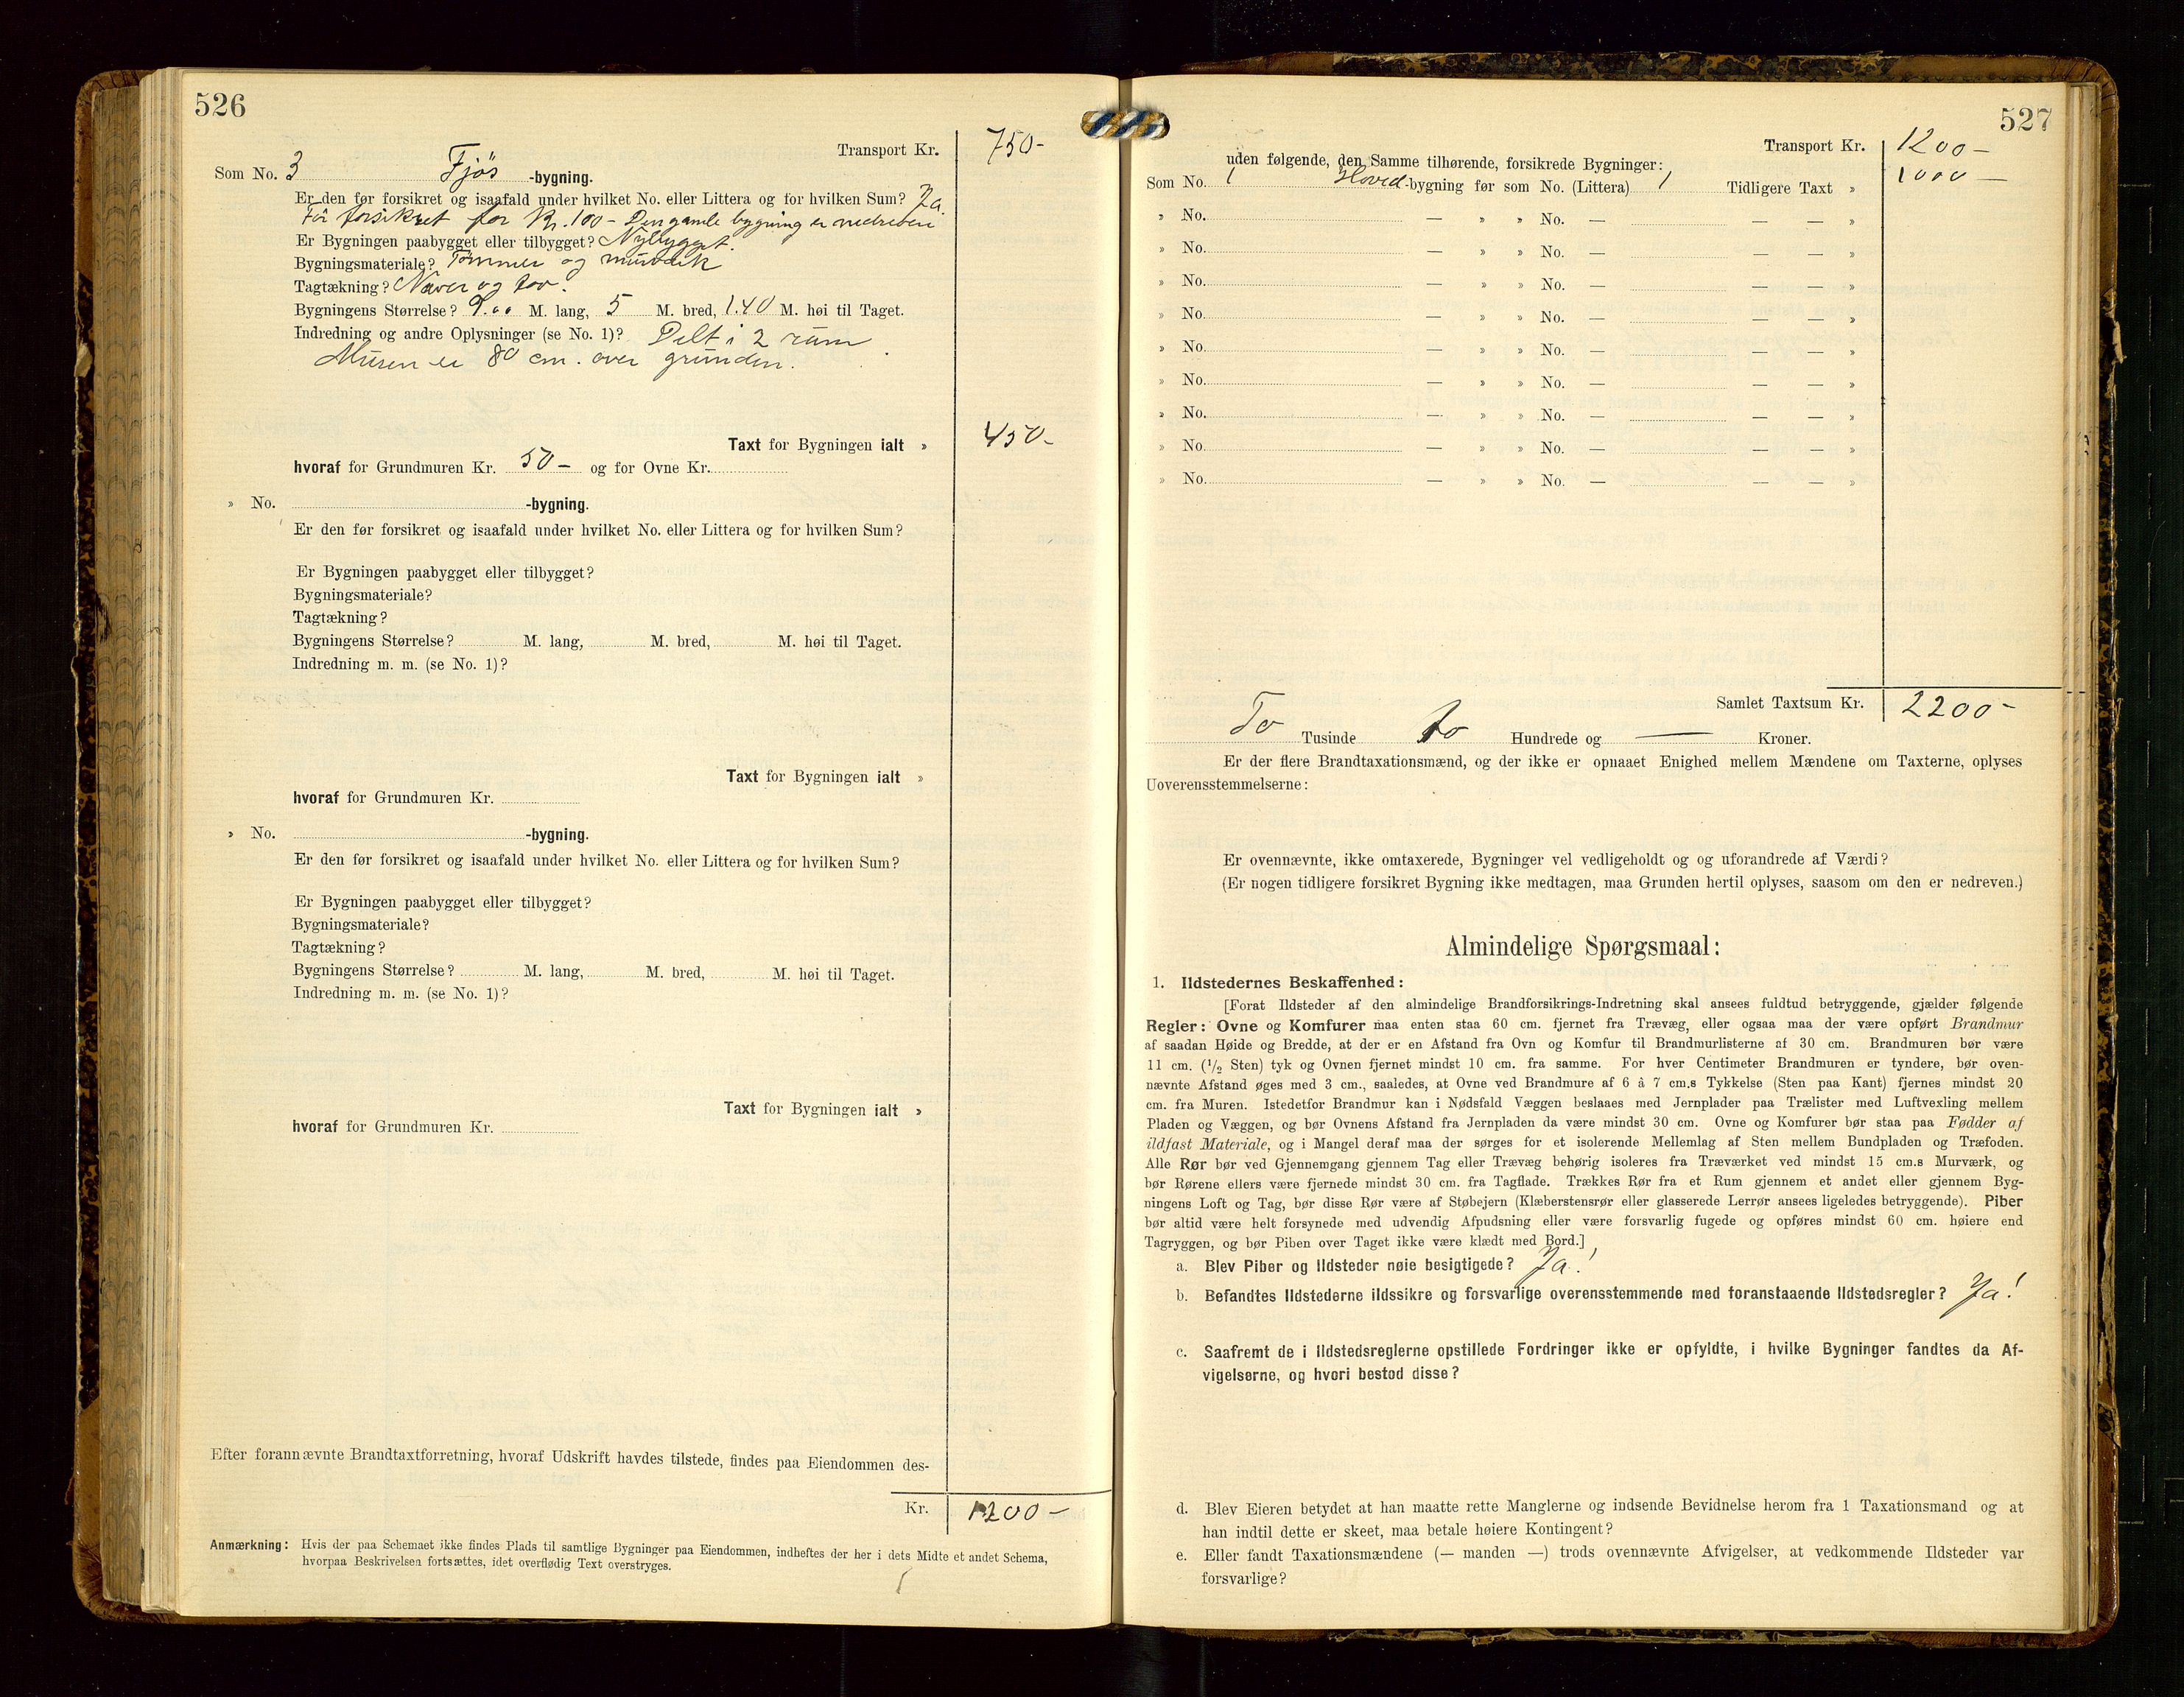 526
Transport Kr. 750-
Som No. 3 Fjös -bygning.
Er den før forsikret og isaafald under hvilket No. eller Littera og for hvilken Sum? Ja.
För forsikret for Kr. 100 - Den gamle bygning er nedreven
Er Bygningen paabygget eller tilbygget? Nybygget.
Bygningsmateriale? Tömmer og murværk
Tagtækning? Næver og tov.
Bygningens Størrelse? 9.00 M. lang, 5 M. bred, 1.40 M. høi til Taget.
Indredning og andre Oplysninger (se No. 1)? Delt i 2 rum
Muren er 80 cm. over grunden.
Taxt for Bygningen ialt » 450-
hvoraf for Grundmuren Kr. 50 - og for Ovne Kr.
» No. -bygning.
Er den før forsikret og isaafald under hvilket No. eller Littera og for hvilken Sum?
Er Bygningen paabygget eller tilbygget?
Bygningsmateriale?
Tagtækning?
Bygningens Størrelse? M. lang, M. bred, M. høi til Taget.
Indredning m. m. (se No. 1)?
Taxt for Bygningen ialt »
hvoraf for Grundmuren Kr.
» No. -bygning.
Er den før forsikret og isaafald under hvilket No. eller Littera og for hvilken Sum?
Er Bygningen paabygget eller tilbygget?
Bygningsmateriale?
Tagtækning?
Bygningens Størrelse? M. lang, M. bred, M. høi til Taget.
Indredning m. m. (se No. 1)?
Taxt for Bygningen ialt »
hvoraf for Grundmuren Kr.
Efter forannævnte Brandtaxtforretning, hvoraf Udskrift havdes tilstede, findes paa Eiendommen des-
Kr. 1200 -
Anmærkning: Hvis der paa Schemaet ikke findes Plads til samtlige Bygninger paa Eiendommen, indheftes der her i dets Midte et andet Schema,
hvorpaa Beskrivelsen fortsættes, idet overflødig Text overstryges.
527
Transport Kr. 1200 -
uden følgende, den Samme tilhørende, forsikrede Bygninger:
Som No. 1 Hoved-bygning før som No. (Littera) 1 Tidligere Taxt » 1000 -
» No. — » » No. — — — »
» No. — » » No. — — — »
» No. — » » No. — — — »
» No. — » » No. — — — »
» No. — » » No. — — — »
» No. — » » No. — — — »
» No. — » » No. — — — »
» No. — » » No. — — — »
» No. — » » No. — — — »
Samlet Taxtsum Kr. 2200 -
To Tusinde to Hundrede og — Kroner.
Er der flere Brandtaxationsmænd, og der ikke er opnaaet Enighed mellem Mændene om Taxterne, oplyses
Uoverensstemmelserne:
Er ovennævnte, ikke omtaxerede, Bygninger vel vedligeholdt og og uforandrede af Værdi?
(Er nogen tidligere forsikret Bygning ikke medtagen, maa Grunden hertil oplyses, saasom om den er nedreven.)
Almindelige Spørgsmaal:
1. Ildstedernes Beskaffenhed:
[Forat Ildsteder af den almindelige Brandforsikrings-Indretning skal ansees fuldtud betryggende, gjælder følgende
Regler: Ovne og Komfurer maa enten staa 60 cm. fjernet fra Trævæg, eller ogsaa maa der være opført Brandmur
af saadan Høide og Bredde, at der er en Afstand fra Ovn og Komfur til Brandmurlisterne af 30 cm. Brandmuren bør være
11 cm. (1/2 Sten) tyk og Ovnen fjernet mindst 10 cm. fra samme. For hver Centimeter Brandmuren er tyndere, bør oven-
nævnte Afstand øges med 3 cm., saaledes, at Ovne ved Brandmure af 6 à 7 cm.s Tykkelse (Sten paa Kant) fjernes mindst 20
cm. fra Muren. Istedetfor Brandmur kan i Nødsfald Væggen beslaaes med Jernplader paa Trælister med Luftvexling mellem
Pladen og Væggen, og bør Ovnens Afstand fra Jernpladen da være mindst 30 cm. Ovne og Komfurer bør staa paa Fødder af
ildfast Materiale, og i Mangel deraf maa der sørges for et isolerende Mellemlag af Sten mellem Bundpladen og Træfoden.
Alle Rør bør ved Gjennemgang gjennem Tag eller Trævæg behørig isoleres fra Træværket ved mindst 15 cm.s Murværk, og
bør Rørene ellers være fjernede mindst 30 cm. fra Tagflade. Trækkes Rør fra et Rum gjennem et andet eller gjennem Byg-
ningens Loft og Tag, bør disse Rør være af Støbejern (Klæberstensrør eller glasserede Lerrør ansees ligeledes betryggende). Piber
bør altid være helt forsynede med udvendig Afpudsning eller være forsvarlig fugede og opføres mindst 60 cm. høiere end
Tagryggen, og bør Piben over Taget ikke være klædt med Bord.]
a. Blev Piber og Ildsteder nøie besigtigede? Ja!
b. Befandtes Ildstederne ildssikre og forsvarlige overensstemmende med foranstaaende Ildstedsregler? Ja!
c. Saafremt de i Ildstedsreglerne opstillede Fordringer ikke er opfyldte, i hvilke Bygninger fandtes da Af-
vigelserne, og hvori bestod disse?
d. Blev Eieren betydet at han maatte rette Manglerne og indsende Bevidnelse herom fra 1 Taxationsmand og at
han indtil dette er skeet, maa betale høiere Kontingent?
e. Eller fandt Taxationsmændene (— manden —) trods ovennævnte Afvigelser, at vedkommende Ildsteder var
forsvarlige?